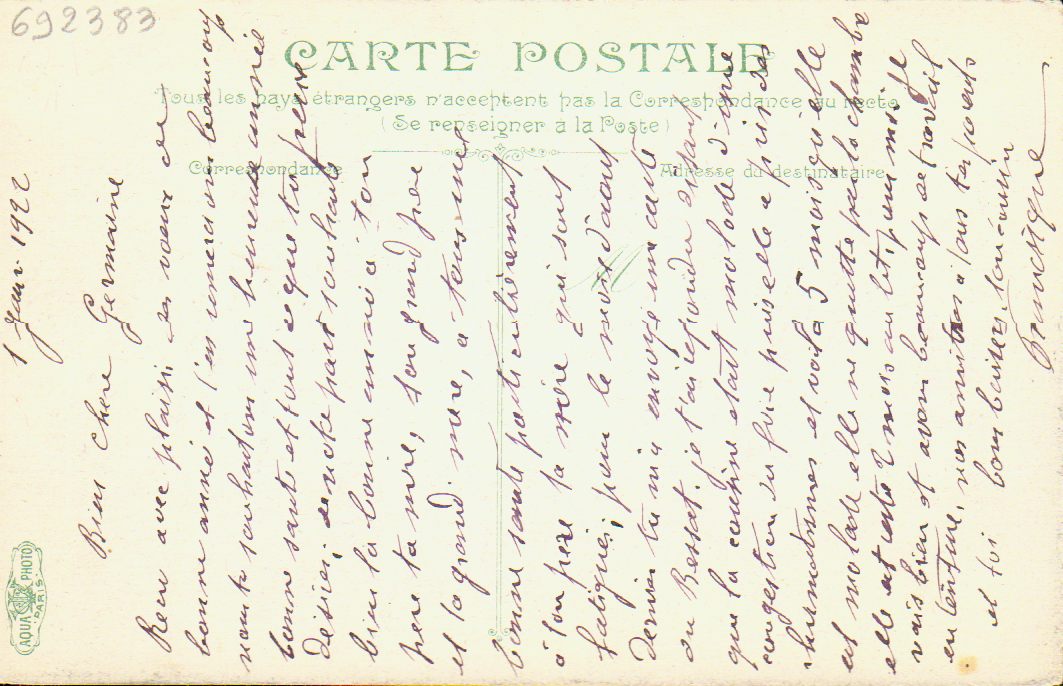 692383
CARTE POSTALE
Tous les pays étrangers n'acceptent pas la Correspondance au recto
(Se renseigner à la Poste)
Correspondance
Adresse du destinataire
M
AQUA PHOTO
PARIS
1 Janv. 1922
Bien chère Germaine
Recu avec plaisir les vœux de
bonne anné et t'en remercions beaucoup
nous te souhaitons une heureuse année
bonne santé et tout ce que tu peux
désirer, de notre part souhaite
bien la bonne année à ton
père ta mère, ton grand père
et ta grand mère, a tous une
bonne santé particulièrement
à ton père ta mère qui sont
fatigués; pour le mois d'aout
dernier tu m'a envoyé une carte
au Bessat, je t'ai répondu disant
que la cousine etait malade d'une
congestion du foie puis elle a pris des
rhumatismes et voilà 5 mois qu'elle
est malade elle ne quitte pas la chambre
elle est resté 2 mois au lit, pour moi je
vais bien et avons beaucoup de travail
en teinture, nos amitiés à tous tes parents
et toi bons baisers, ton cousin